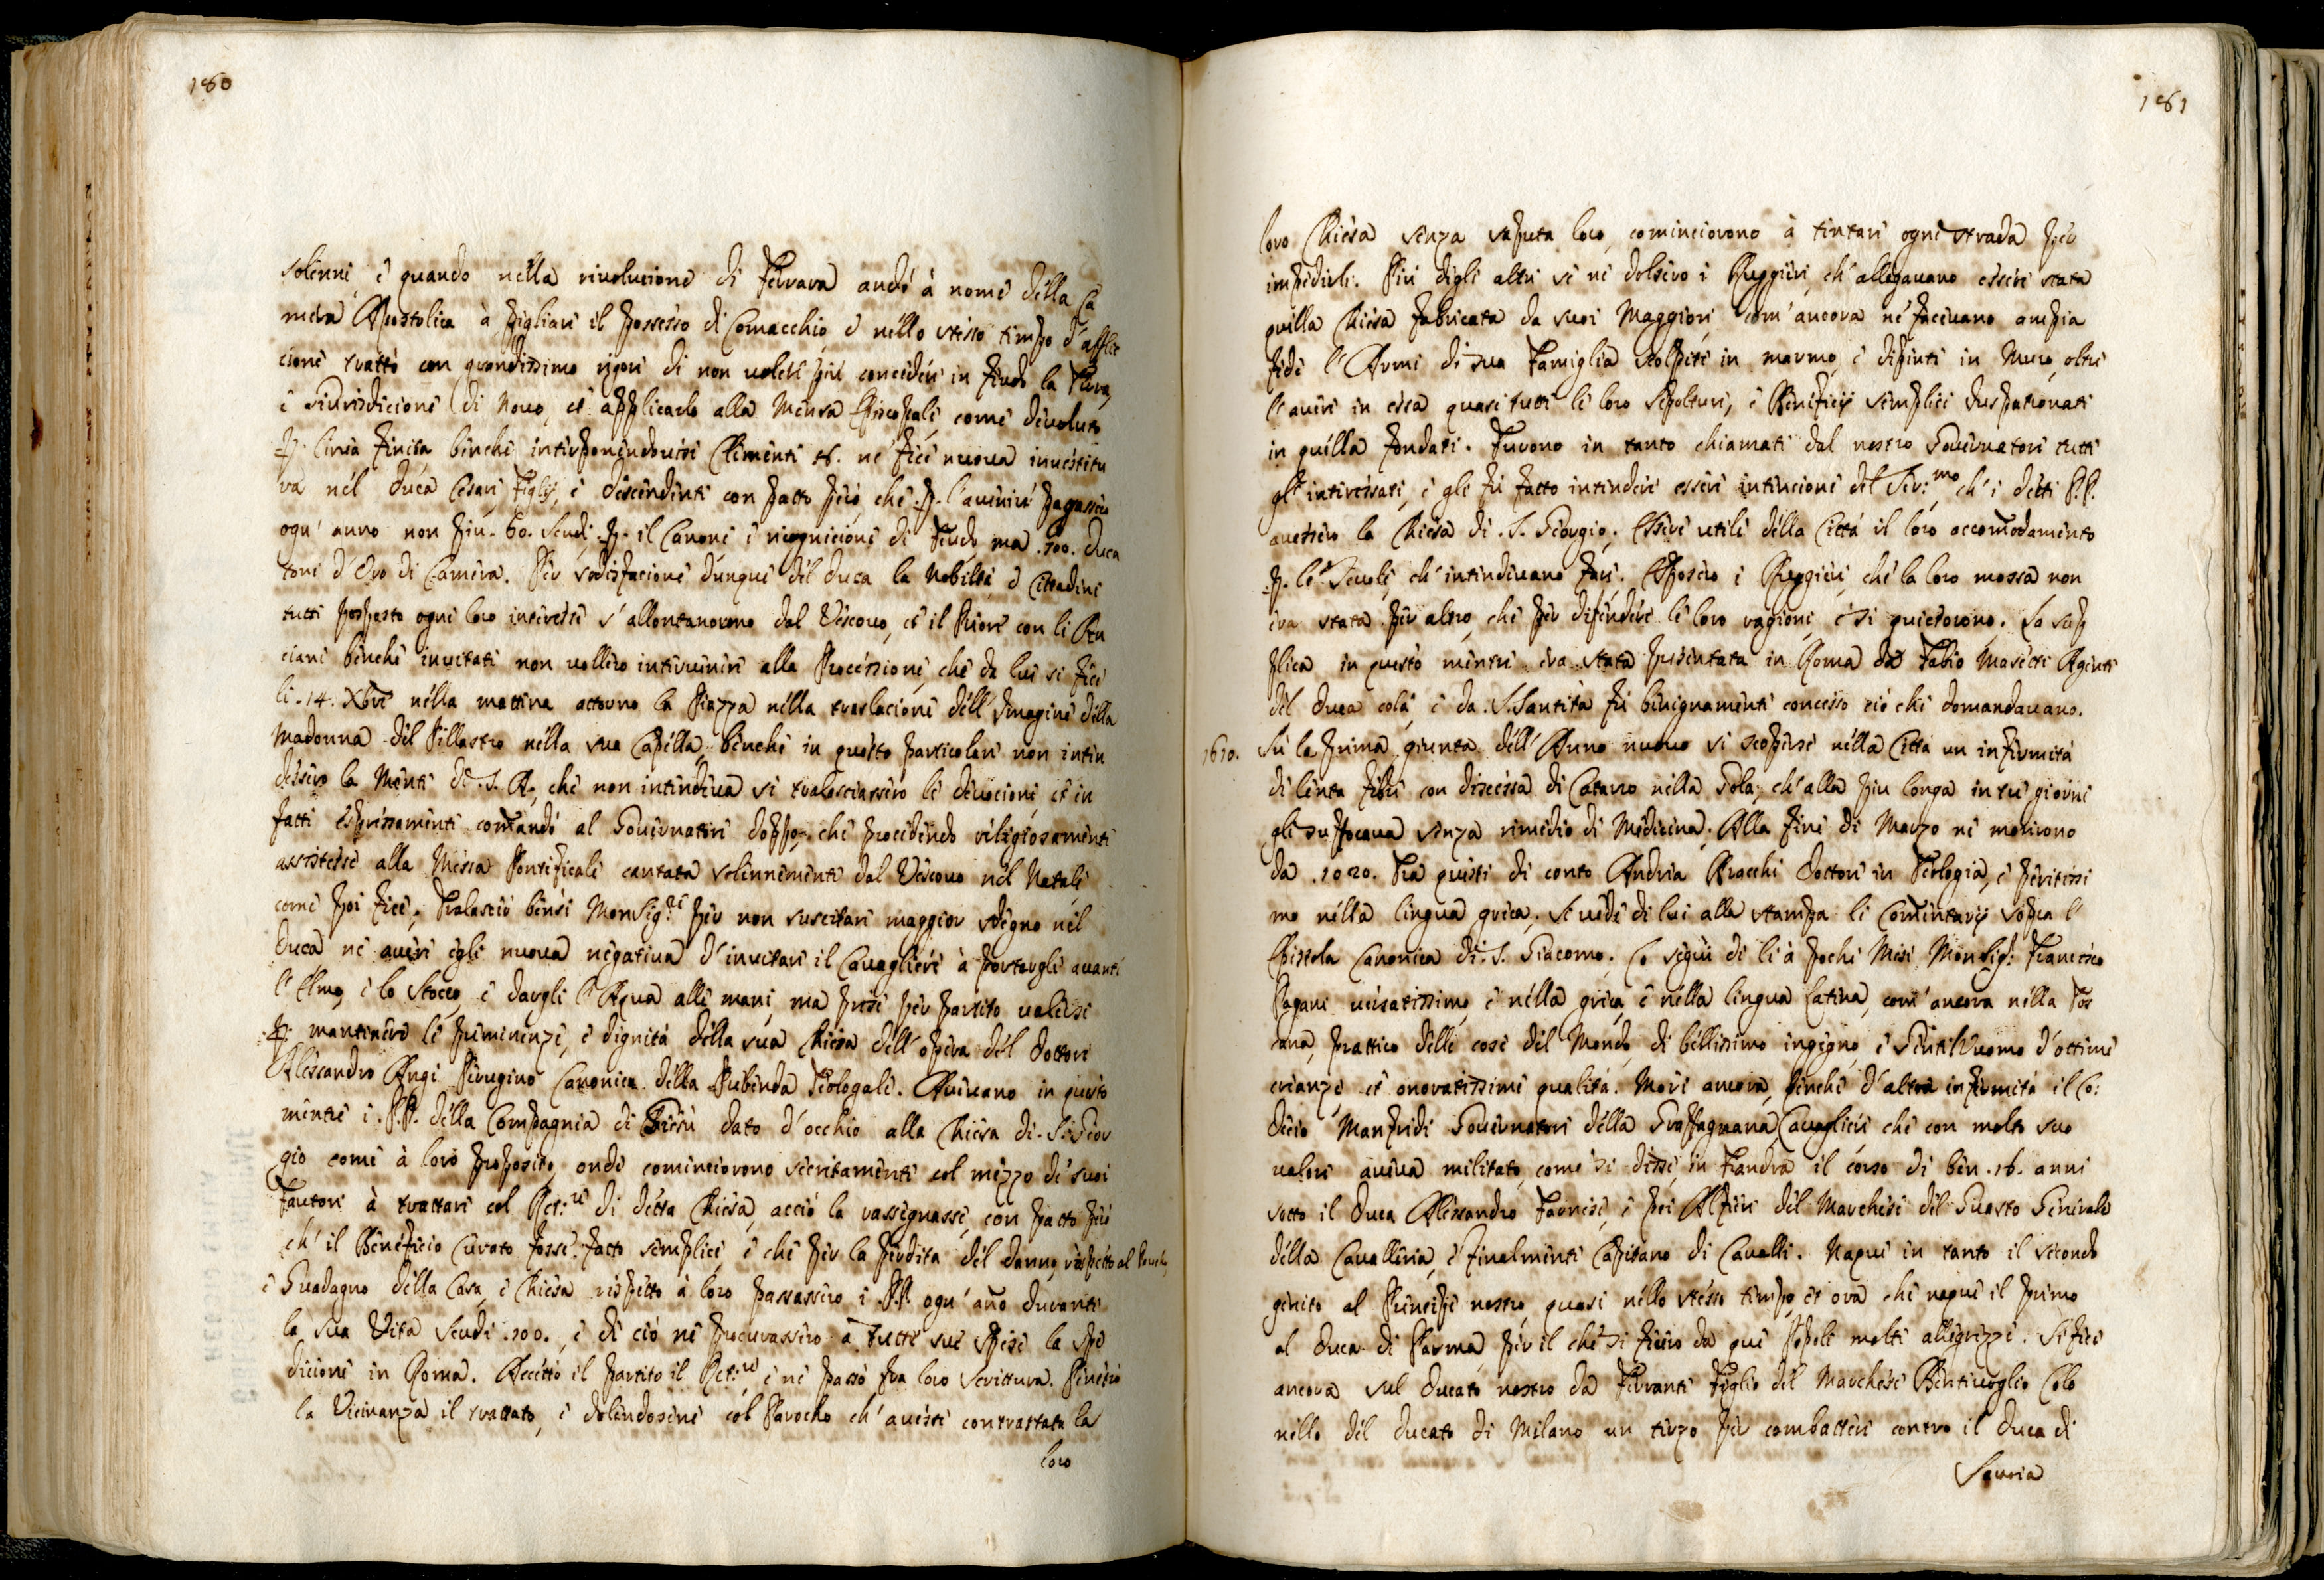 180
solenni, e quando nella rivolucione di Ferrara andò à nome della Ca
mera Apostolica à pigliare il possesso di Comacchio, e nello stesso tempo d'afflit
cione trattò con grandissimo rigore di non voler più concedere in feudo la Terra,
e Giurisdicione di Novo, et applicarlo alla Mensa Episcopale, come devoluto
p. linea finita benche interponendovisi Clemente 8. ne fece nuova investitu
ra nel Duca Cesare, Figlij, e descendenti con patto però che p. l'avenire pagassero
ogn' anno non piu. 60. Scudi p. il Canone e ricognicione di Feudo, ma .100. Duca
toni d'Oro di Camera. Per sodisfacione dunque del Duca la Nobiltà, e Cittadini
tutti posposto ogni loro interesse s'allontanorono dal Vescovo, et il Priore con li An
ciani benche invitati non vollero intervenire alla Processione, che da lui si fece
li. 14. Xbre nella mattina attorno la Piazza nella traslacione dell'Imagine della
Madonna del Pillastro nella sua Capella, benche in questo particolare non inten
dessero la Mente di S. A., che non intendeva si tralasciassero le devocioni et in
fatti espressamente comandò al Governatore doppo, che procedendo religiosamente
assistesse alla Messa Pontificale cantata solennemente dal Vescovo nel Natale
come poi fece. Tralasciò bensi Monsig.re per non suscitare maggior sdegno nel
Duca ne avere egli nuova negativa d'invitare il Cavagliere à portargli avanti
l'Elmo, e lo stocco, e dargli l'Aqua alle mani, ma prese per partito valersi
p. mantenere le preminenze, e dignità della sua Chiesa dell'opera del Dottore
Alessandro Angi Perugino Canonico della Prebenda Teologale. Avevano in questo
mentre i P.P. della Compagnia di Giesù dato d'occhio alla Chiesa di S. Gior
gio come à loro proposito, onde cominciorono secretamente col mezzo de' suoi
Fautori à trattare col Ret:re di detta Chiesa, acciò la rassegnasse, con patto però
ch' il Beneficio Curato fosse fatto semplice, e che per la perdita del danno, rispetto al
e Guadagno della Casa, e Chiesa rispetto à loro passassero i P.P. ogn'año durante
la sua Vita Scudi .100., e di ciò ne procurassero à tutte sue spese la spe
dicione in Roma. Accettò il partito il Ret:re, e ne passò fra loro scrittura. Penetrò
la Vicinanza il trattato, e dolendosene col Parocho ch' avesse contrattata la
loro
181
loro Chiesa senza saputa loro, cominciorono à tentare ogni strada per
impedirli. Piu degli altri se ne dolsero i Ruggieri, ch' allegavano essere stata
quella Chiesa fabricata da suoi Maggiori, com' ancora ne facevano ampia
fede l'Armi di sua Famiglia scolpite in marmo, e dipinte in Muro, oltre
l'avere in essa quasi tutte le loro sepolture, e Beneficij semplici Juspatronati
in quella fondati. Furono in tanto chiamati dal nostro Governatore tutti
gl' interessati, e gli fù fatto intendere essere intencione del Ser:mo ch' i detti P.P.
avessero la Chiesa di S. Giorgio. Essere utile della Città il loro accomodamento
p. le Scuole, ch' intendevano fare. Esposero i Ruggieri, che la loro mossa non
era stata per altro, che per difendere le loro ragioni, e si quietorono. La sup
plica in questo mentre era stata presentata in Roma da Fabio Masetti Agente
del Duca colà, e da S. Santità fù benignamente concesso ciò che domandavano.
1610. Sù la prima giunta dell'Anno nuovo si scoperse nella Città un infermità
di lenta febre con discessa di Cataro nella Gola, ch' alla piu longa in tre giorni
gli suffocava senza rimedio di Medicina. Alla fine di Marzo ne morirono
da .1020. Frà questi di conto Andrea Bracchi Dottore in Teologia, e peritissi
mo nella lingua greca. Si vede di lui alla stampa li Comentarij sopra l'
Epistola Canonica di S. Giacomo. Lo seguì di li à pochi Mesi Monsig: Francesco
Pagani versatissimo e nella greca, e nella lingua Latina, com' ancora nella Tos
cana, prattico delle cose del Mondo, di bellissimo ingegno, e Gentil'Uomo d'ottime
creanze et onoratissime qualità. Morì ancora, benche d'altra infermità il Co:
Decio Manfredi Governatore della Graffagnana, Cavagliere che con molto suo
valore aveva militato, come si disse, in Fiandra il corso di ben .16. anni
sotto il Duca Alessandro Farnese, e poi Alfiere del Marchese del Guasto Generale
della Cavalleria, e finalmente Capitano di Cavalli. Naque in tanto il secondo
genito al Principe nostro quasi nello stesso tempo, et ora che naque il primo
al Duca di Parma, per il che si fecero da que' Popoli molte allegrezze. Si fece
ancora sul Ducato nostro da Ferrante Figlio del Marchese Bentivoglio Colo
nello del Ducato di Milano un terzo per combattere contro il Duca di
Savoia